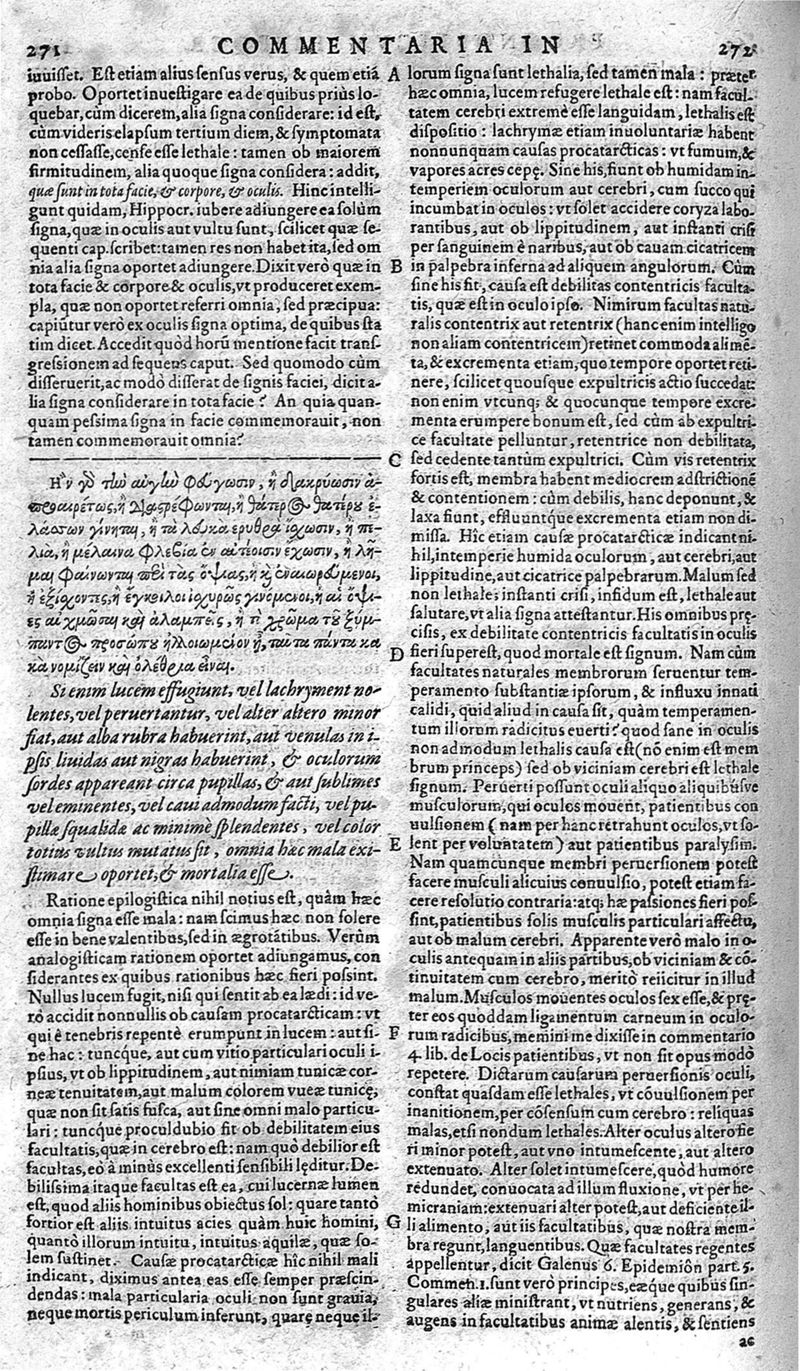 271 COMMENTARIA IN 272
iuuisset. Est etiam alius sensus verus, & quem etiā
probo. Oportet inuestigare ea de quibus prius lo-
quebar, cùm dicerem, alia signa considerare: id est,
cùm videris elapsum tertium diem, & symptomata
non cessasse, cense esse lethale: tamen ob maiorem
firmitudinem, alia quoque signa considera: addit,
quæ sunt in tota facie, & corpore, & oculis. Hinc intelli-
gunt quidam, Hippocr. iubere adiungere ea solùm
signa, quæ in oculis aut vultu sunt, scilicet quæ se-
quenti cap. scribet: tamen res non habet ita, sed om
nia alia signa oportet adiungere. Dixit verò quæ in
tota facie & corpore & oculis, vt produceret exem-
pla, quæ non oportet referri omnia, sed præcipua:
capiūtur verò ex oculis signa optima, de quibus sta
tim dicet. Accedit quòd horū mentione facit trans-
gressionem ad sequens caput. Sed quomodo cùm
disseruerit, ac modò disserat de signis faciei, dicit a-
lia signa considerare in tota facie? An quia quan-
quam pessima signa in facie commemorauit, non
tamen commemorauit omnia?
Ἢν γὸ τὼ αὐγὼ φεύγωσιν, ἢ δακρύωσιν ἀ-
προαιρέτως, ἢ διαστρέφωνται, ἢ θάτερος θατέρου ἐ-
λάσσων γίνηται, ἢ τὰ λευκὰ ἐρυθρὰ ἴσχωσιν, ἢ πε-
λιὰ, ἢ μέλαινα φλεβία ἐν αὐτέοισιν ἔχωσιν, ἢ λῆ-
μαι φαίνωνται περὶ τὰς ὄψιας, ἢ καὶ ἐναιωρεύμενοι,
ἢ ἐξίσχοντες, ἢ ἔγκοιλοι ἰσχυρῶς γινόμενοι, ἢ αἱ ὄψι-
ες αὐχμῶσαι καὶ ἀλαμπεῖς, ἢ τὸ χρῶμα τοῦ ξύμ-
παντος προσώπου ἠλλοιωμένον ᾖ, ταῦτα πάντα κα
κὰ νομίζειν καὶ ὀλέθρια εἶναι.
Si enim lucem effugiunt, vel lachryment no-
lentes, vel peruertantur, vel alter altero minor
fiat, aut alba rubra habuerint, aut venulas in i-
psis liuidas aut nigras habuerint, & oculorum
sordes appareant circa pupillas, & aut sublimes
vel eminentes, vel caui admodum facti, vel pu-
pillæ squalidæ ac minimè splendentes, vel color
totius vultus mutatus sit, omnia hæc mala exi-
stimare oportet, & mortalia esse.
Ratione epilogistica nihil notius est, quàm hæc
omnia signa esse mala: nam scimus hæc non solere
esse in bene valentibus, sed in ægrotātibus. Verùm
analogisticam rationem oportet adiungamus, con
siderantes ex quibus rationibus hæc fieri possint.
Nullus lucem fugit, nisi qui sentit ab ea lædi: id ve-
rò accidit nonnullis ob causam procatarcticam: vt
qui è tenebris repentè erumpunt in lucem: aut si-
ne hac: tuncque, aut cum vitio particulari oculi i-
psius, vt ob lippitudinem, aut nimiam tunicæ cor-
neæ tenuitatem, aut malum colorem vueæ tunicę,
quæ non sit satis fusca, aut sine omni malo particu-
lari: tuncque proculdubio fit ob debilitatem eius
facultatis, quæ in cerebro est: nam quò debilior est
facultas, eò à minùs excellenti sensibili lęditur. De-
bilissima itaque facultas est ea, cui lucernæ lumen
est, quod aliis hominibus obiectus sol: quare tantò
fortior est aliis intuitus acies quàm huic homini,
quantò illorum intuitu, intuitus aquilæ, quæ so-
lem sustinet. Causæ procatarcticæ hîc nihil mali
indicant, diximus antea eas esse semper præscin-
dendas: mala particularia oculi non sunt grauia,
neque mortis periculum inferunt, quare neque il-
A lorum signa sunt lethalia, sed tamen mala: præter
hæc omnia, lucem refugere lethale est: nam facul-
tatem cerebri extremè esse languidam, lethalis est
dispositio: lachrymæ etiam inuoluntariæ habent
nonnunquam causas procatarcticas: vt fumum, &
vapores acres cepę. Sine his, fiunt ob humidam in-
temperiem oculorum aut cerebri, cum succo qui
incumbat in oculos: vt solet accidere coryza labo-
rantibus, aut ob lippitudinem, aut instanti crisi
per sanguinem è naribus, aut ob cauam cicatricem
B in palpebra inferna ad aliquem angulorum. Cùm
sine his fit, causa est debilitas contentricis faculta-
tis, quæ est in oculo ipso. Nimirum facultas natu-
ralis contentrix aut retentrix (hanc enim intelligo
non aliam contentricem) retinet commoda alimē-
ta, & excrementa etiam, quo tempore oportet reti-
nere, scilicet quousque expultricis actio succedat:
non enim vtcunq; & quocunque tempore excre-
menta erumpere bonum est, sed cùm ab expultri-
ce facultate pelluntur, retentrice non debilitata,
C sed cedente tantùm expultrici. Cùm vis retentrix
fortis est, membra habent mediocrem adstrictionē
& contentionem: cùm debilis, hanc deponunt, &
laxa fiunt, effluuntque excrementa etiam non di-
missa. Hîc etiam causæ procatarcticæ indicant ni-
hil, intemperie humida oculorum, aut cerebri, aut
lippitudine, aut cicatrice palpebrarum. Malum sed
non lethale: instanti crisi, infidum est, lethale aut
salutare, vt alia signa attestantur. His omnibus prę-
cisis, ex debilitate contentricis facultatis in oculis
D fieri superest, quod mortale est signum. Nam cùm
facultates naturales membrorum seruentur tem-
peramento substantiæ ipsorum, & influxu innati
calidi, quid aliud in causa sit, quàm temperamen-
tum illorum radicitus euerti? quod sane in oculis
non admodum lethalis causa est (nō enim est mem
brum princeps) sed ob viciniam cerebri est lethale
signum. Peruerti possunt oculi aliquo aliquibusve
musculorum, qui oculos mouent, patientibus con
uulsionem (nam per hanc retrahunt oculos, vt so-
E lent per voluntatem) aut patientibus paralysim.
Nam quamcunque membri peruersionem potest
facere musculi alicuius conuulsio, potest etiam fa-
cere resolutio contraria: atq; hæ passiones fieri pos-
sint, patientibus solis musculis particulari affectu,
aut ob malum cerebri. Apparente verò malo in o-
culis antequam in aliis partibus, ob viciniam & cō-
tinuitatem cum cerebro, meritò reiicitur in illud
malum. Musculos mouentes oculos sex esse, & prę-
ter eos quoddam ligamentum carneum in oculo-
F rum radicibus, memini me dixisse in commentario
4. lib. de Locis patientibus, vt non sit opus modò
repetere. Dictarum causarum peruersionis oculi,
constat quasdam esse lethales, vt cōuulsionem per
inanitionem, per cōsensum cum cerebro: reliquas
malas, etsi nondum lethales. Alter oculus altero fie
ri minor potest, aut vno intumescente, aut altero
extenuato. Alter solet intumescere, quòd humore
redundet, conuocata ad illum fluxione, vt per he-
micraniam: extenuari alter potest, aut deficiente il-
G li alimento, aut iis facultatibus, quæ nostra mem-
bra regunt, languentibus. Quæ facultates regentes
appellentur, dicit Galenus 6. Epidemiôn part. 5.
Commen. 1. sunt verò principes, eæque quibus sin-
gulares aliæ ministrant, vt nutriens, generans, &
augens in facultatibus animæ alentis, & sentiens
ac